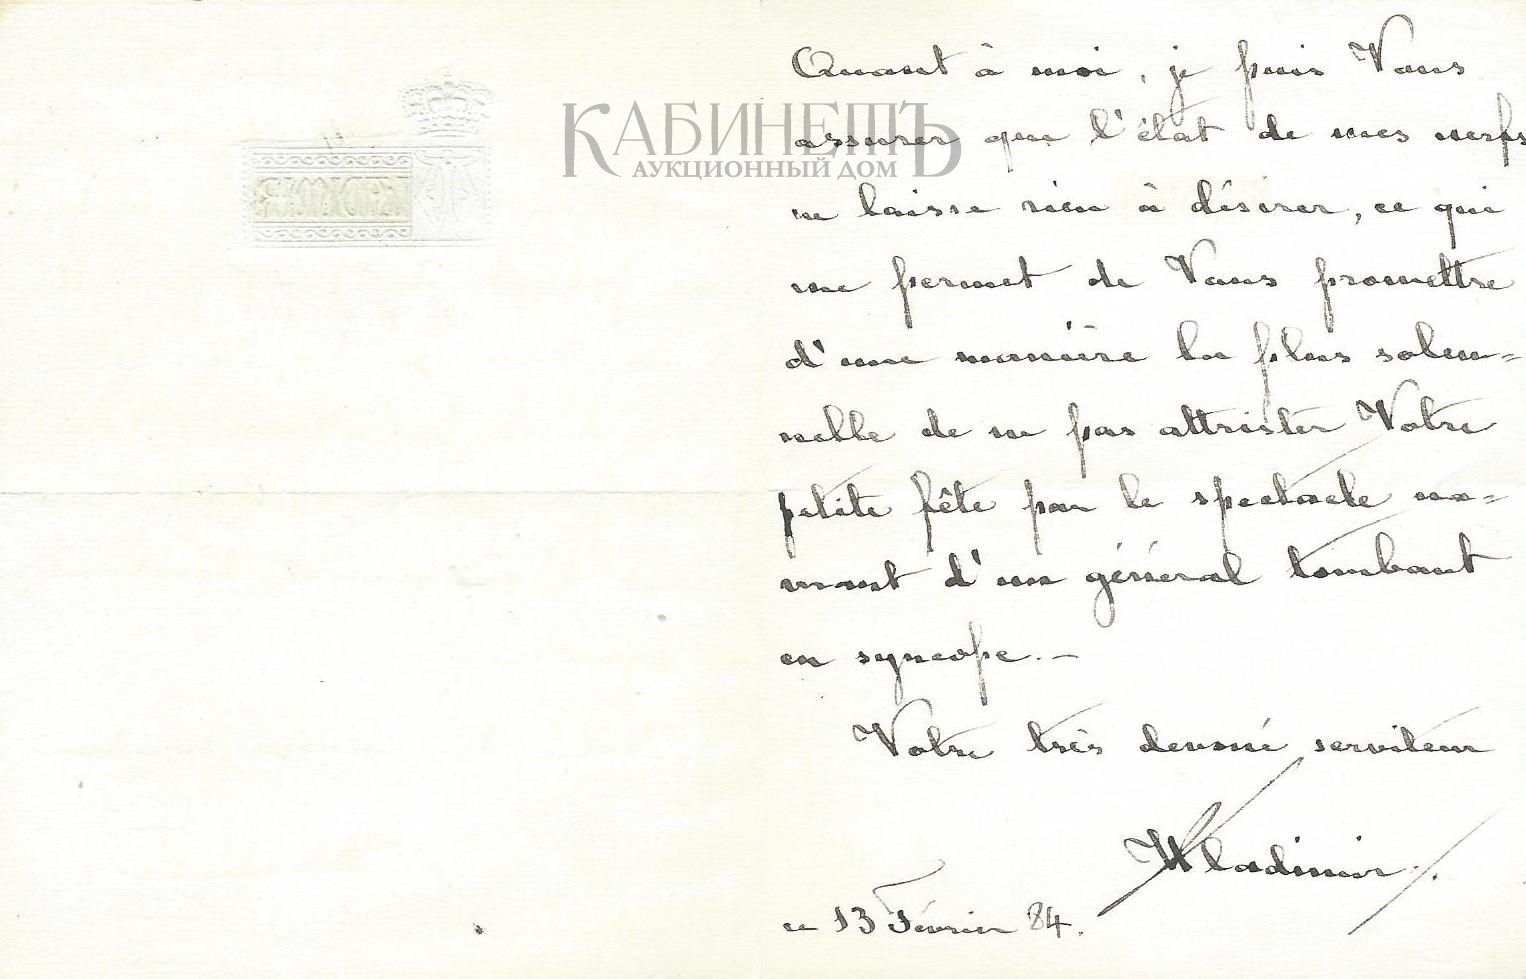 КАБИНЕТЪ
АУКЦИОННЫЙ ДОМ
Quant à moi, je puis Vous
assurer que l'état de mes nerfs
ne laisse rien à désirer, ce qui
me permet de Vous promettre
d'une manière la plus solen=
nelle de ne pas attrister Votre
petite fête par le spectacle na=
vrant d'un général tombant
en syncope.—
Votre très dévoué serviteur
Wladimir.
ce 13 Février 84.